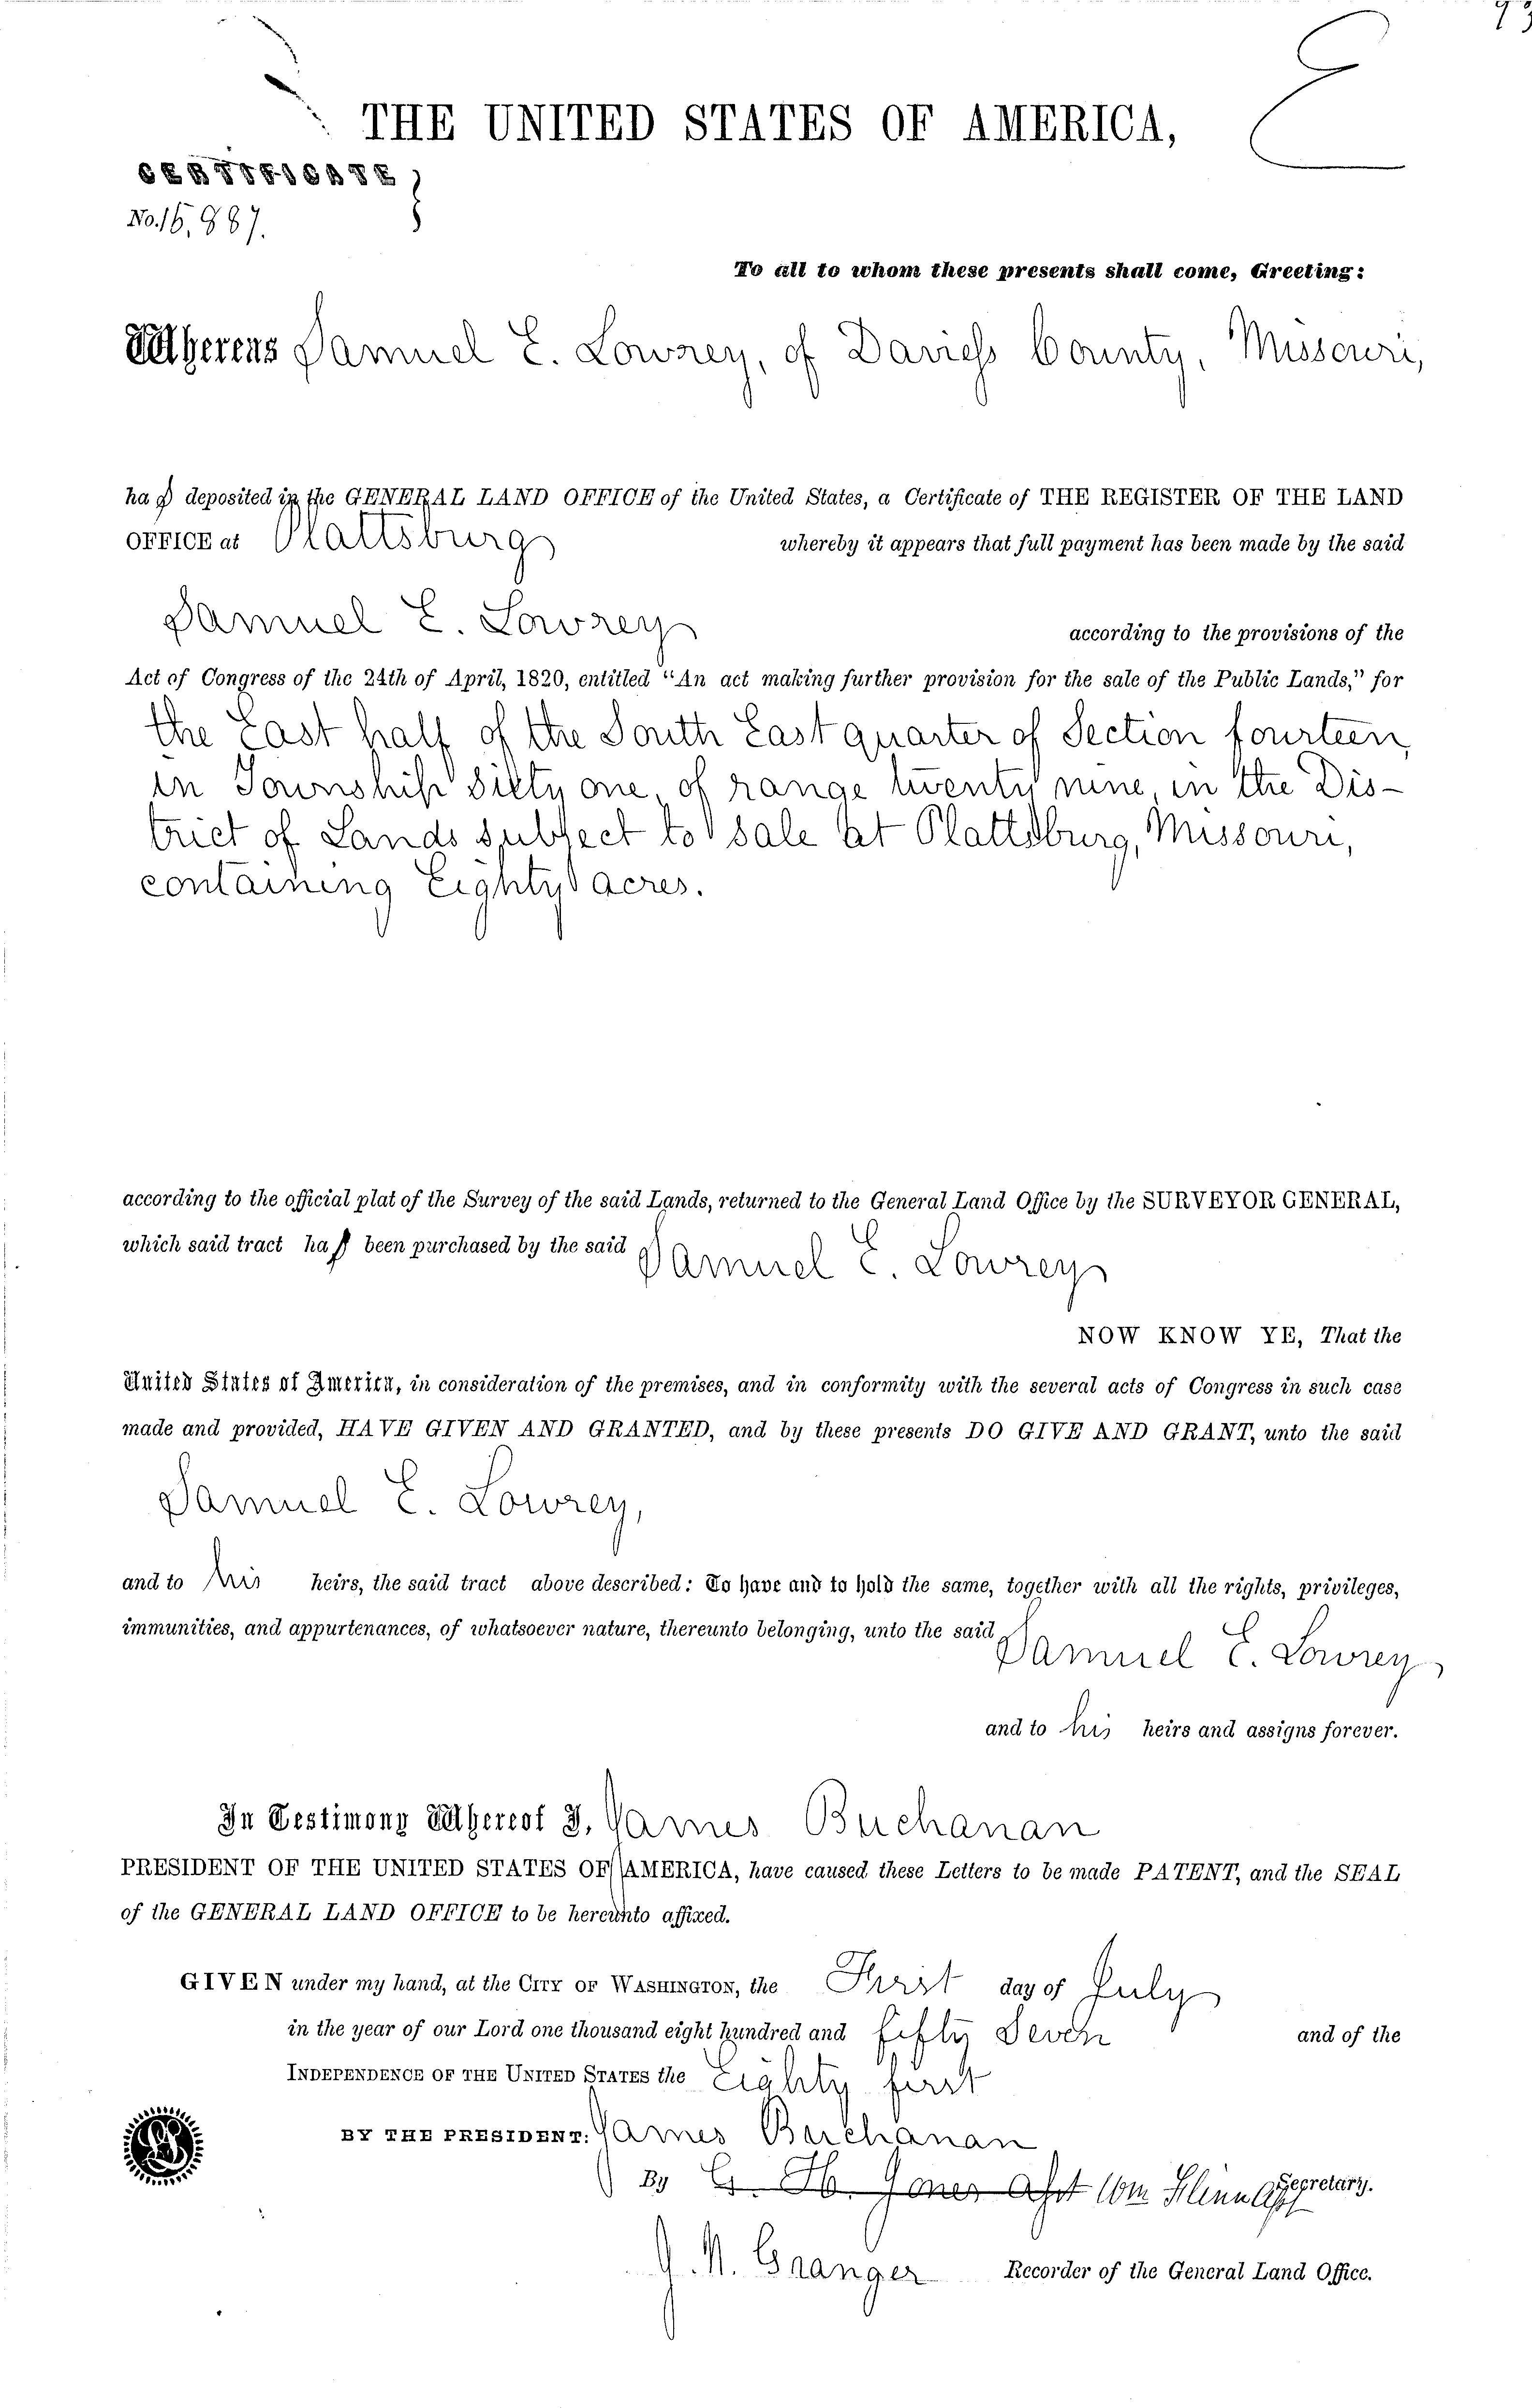 THE UNITED STATES OF AMERICA,
CERTIFICATE
No. 15,887.
To all to whom these presents shall come, Greeting:
Whereas Samuel E. Lowrey, of Daviess County, Missouri,
has deposited in the GENERAL LAND OFFICE of the United States, a Certificate of THE REGISTER OF THE LAND
OFFICE at Plattsburg whereby it appears that full payment has been made by the said
Samuel E. Lowrey according to the provisions of the
Act of Congress of the 24th of April, 1820, entitled "An act making further provision for the sale of the Public Lands," for
the East half of the South East quarter of Section fourteen,
in Township sixty one, of range twenty nine, in the Dis-
trict of Lands subject to sale at Plattsburg, Missouri,
containing Eighty acres.
according to the official plat of the Survey of the said Lands, returned to the General Land Office by the SURVEYOR GENERAL,
which said tract has been purchased by the said Samuel E. Lowrey
NOW KNOW YE, That the
United States of America, in consideration of the premises, and in conformity with the several acts of Congress in such case
made and provided, HAVE GIVEN AND GRANTED, and by these presents DO GIVE AND GRANT, unto the said
Samuel E. Lowrey,
and to his heirs, the said tract above described: To have and to hold the same, together with all the rights, privileges,
immunities, and appurtenances, of whatsoever nature, thereunto belonging, unto the said Samuel E. Lowrey
and to his heirs and assigns forever.
In Testimony Whereof I, James Buchanan
PRESIDENT OF THE UNITED STATES OF AMERICA, have caused these Letters to be made PATENT, and the SEAL
of the GENERAL LAND OFFICE to be hereunto affixed.
GIVEN under my hand, at the CITY OF WASHINGTON, the First day of July
in the year of our Lord one thousand eight hundred and fifty Seven and of the
INDEPENDENCE OF THE UNITED STATES the Eighty first
BY THE PRESIDENT: James Buchanan
By G. H. Jones Asst Wm Flinn Asst Secretary.
J. N. Granger Recorder of the General Land Office.